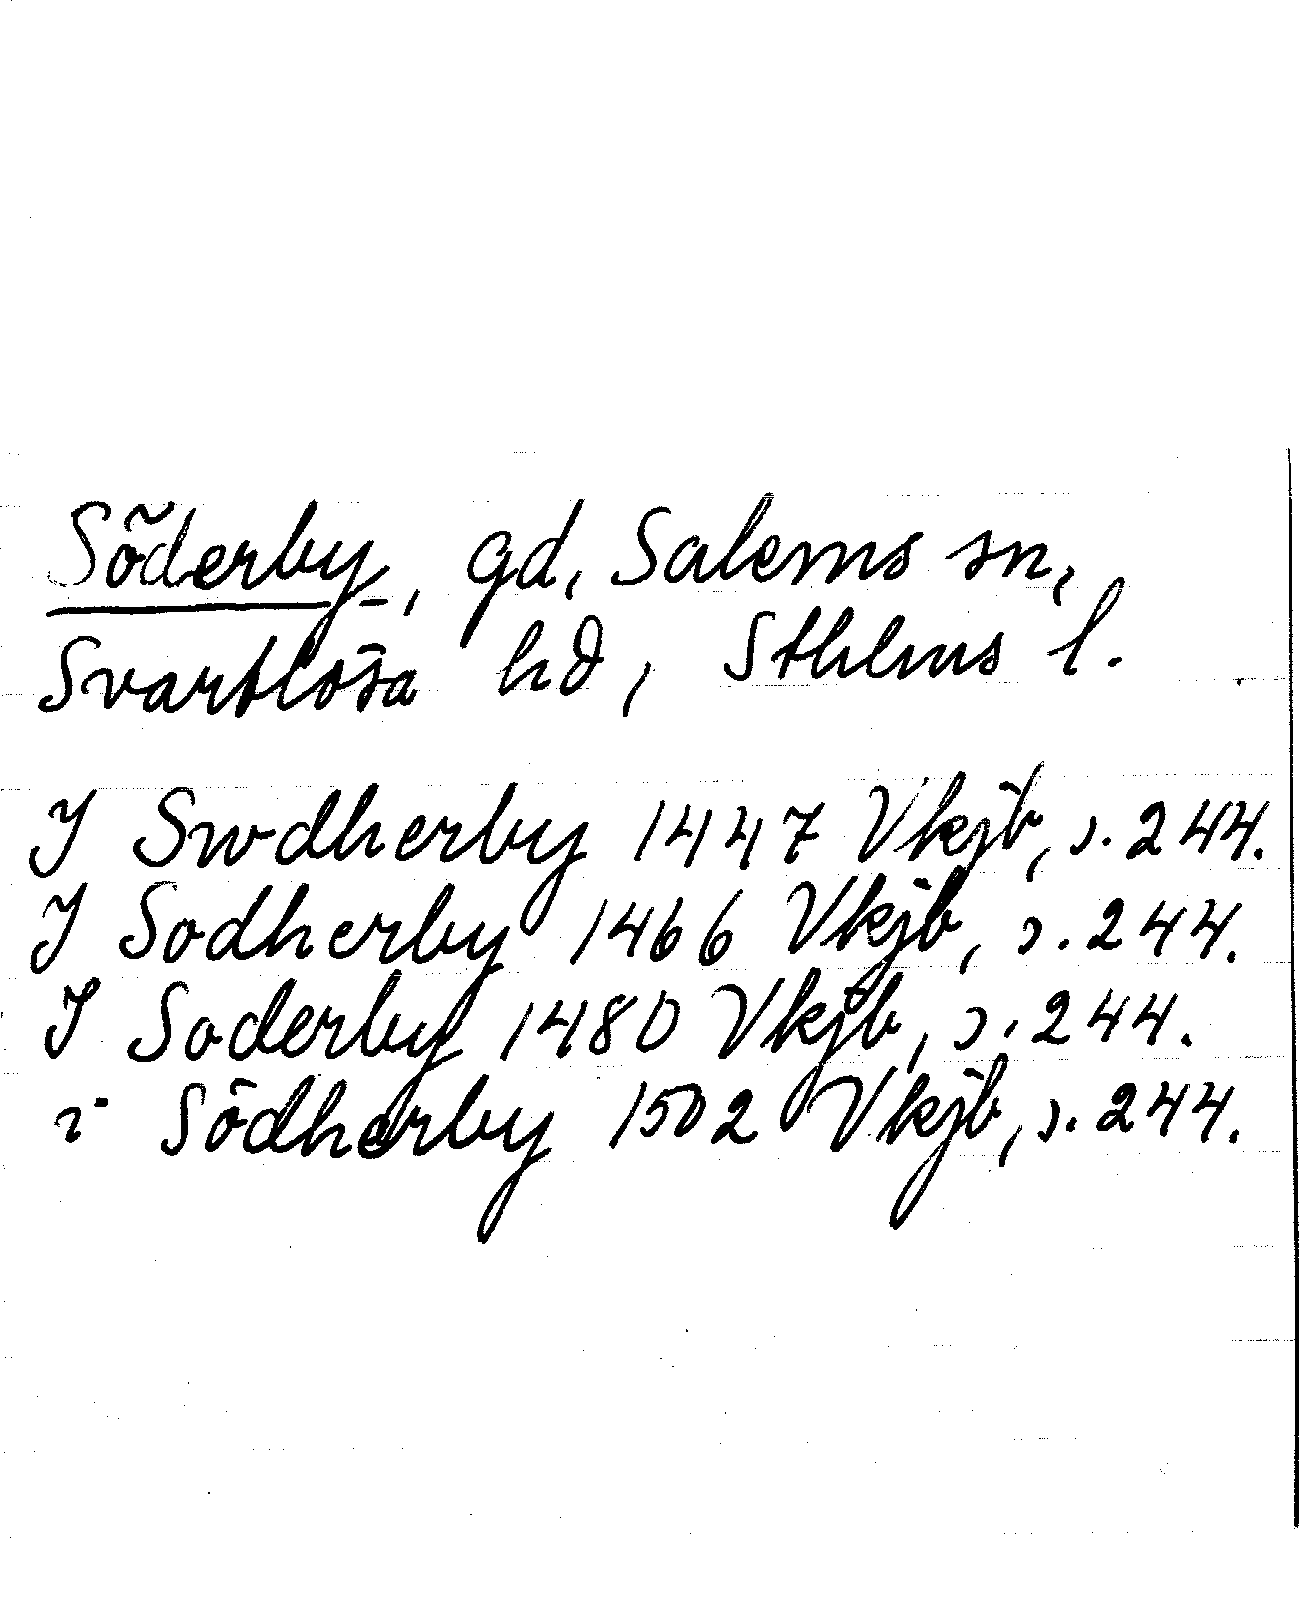 Söderby, gd, Salems sn,
Svartlösa hd, Sthlms l.
J Swdherby 1447 Vkjb, s. 244.
J Sodherby 1466 Vkjb, s. 244.
J Soderby 1480 Vkjb, s. 244.
i Södherby 1502 Vkjb, s. 244.